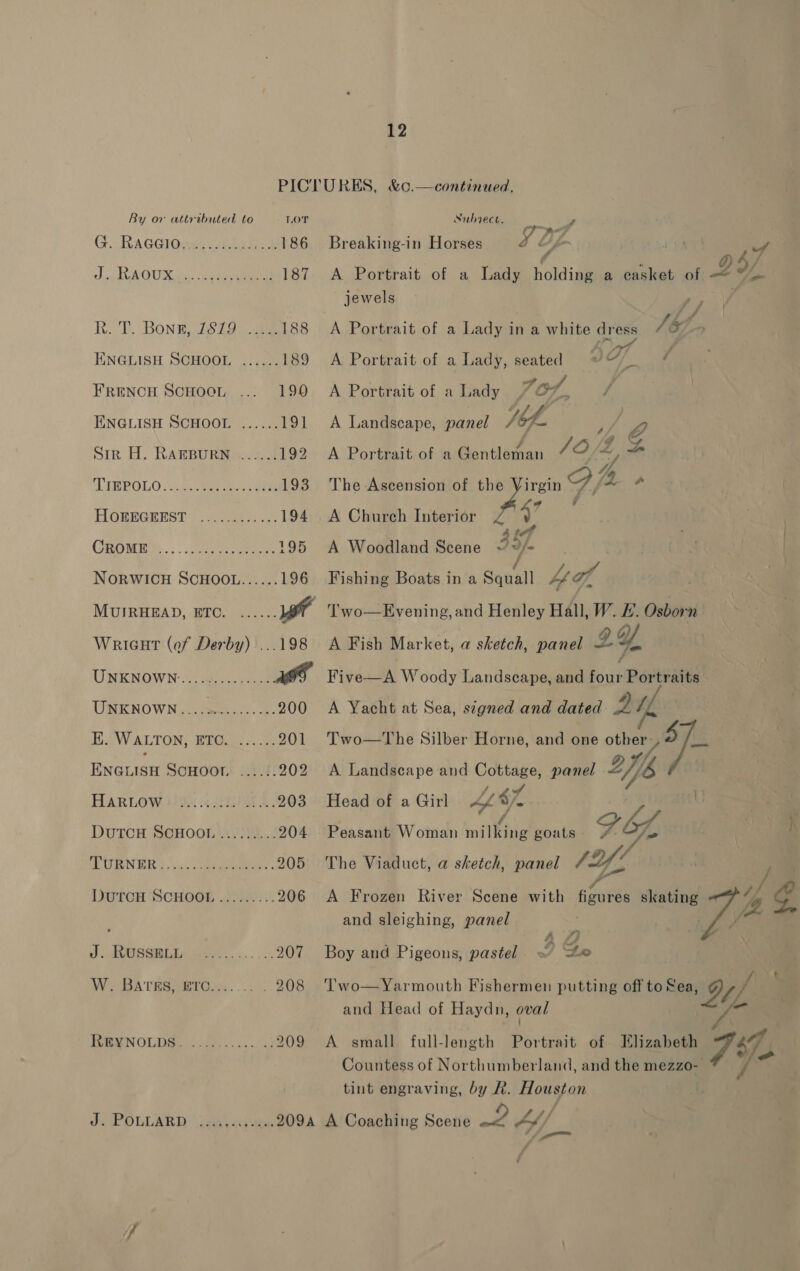 12
PICTURES, &c.—continued.
By or attributed to LOT Subject.
G. RAGGIO ............... 186 Breaking-in Horses
J. RAOUX ............... 187 A Portrait of a Lady holding a casket of
jewels
R. T. BONE, 1819 ...... 188 A Portrait of a Lady in a white dress
ENGLISH SCHOOL ...... 189 A Portrait of a Lady, seated
FRENCH SCHOOL ... 190 A Portrait of a Lady
ENGLISH SCHOOL ...... 191 A Landscape, panel
SIR H. RAEBURN ...... 192 A Portrait of a Gentleman
TIEPOLO ............... 193 The Ascension of the Virgin
HOEEGEEST ............ 194 A Church Interior
CROME ............... 195 A Woodland Scene
NORWICH SCHOOL ...... 196 Fishing Boats in a Squall
MUIRHEAD, ETC. ...... Two—Evening, and Henley Hall, W. E. Osborn
WRIGHT (of Derby) ...198 A Fish Market, a sketch, panel
UNKNOWN ............ Five—A Woody Landscape, and four Portraits
UNKNOWN ............ 200 A Yacht at Sea, signed and dated
E. WALTON, ETC. ...... 201 Two—The Silber Horne, and one other
ENGLISH SCHOOL ...... 202 A Landscape and Cottage, panel
HARLOW ............ 203 Head of a Girl
DUTCH SCHOOL ......... 204 Peasant Woman milking goats
TURNER ............... 205 The Viaduct, a sketch, panel
DUTCH SCHOOL ......... 206 A Frozen River Scene with figures skating
and sleighing, panel
J. RUSSELL ............ 207 Boy and Pigeons, pastel
W. BATES, ETC. ...... 208 Two—Yarmouth Fishermen putting off to Sea,
and Head of Haydn, oval
REYNOLDS ............ 209 A small full-length Portrait of Elizabeth
Countess of Northumberland, and the mezzo-
tint engraving, by R. Houston
J. POLLARD ............ 209A A Coaching Scene